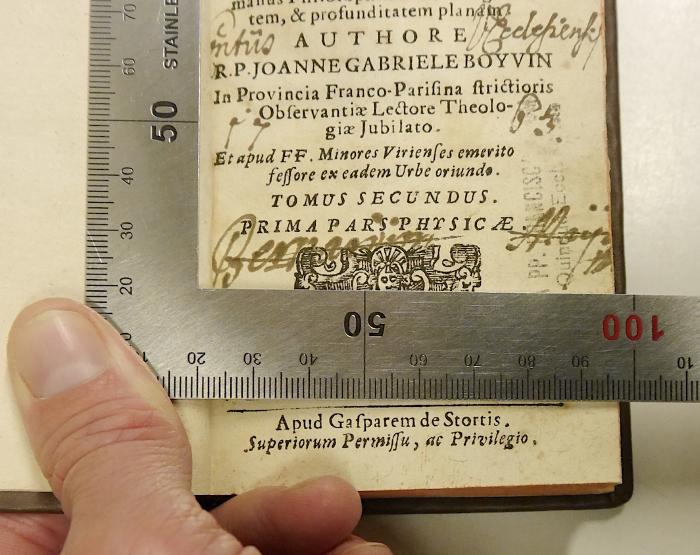 tem, & profunditatem planam
AUTHORE
R.P. JOANNE GABRIELE BOYVIN
In Provincia Franco-Parisina strictioris
Observantiæ Lectore Theolo-
giæ Jubilato.
Et apud FF. Minores Virienses emerito
fessore ex eadem Urbe oriundo.
TOMUS SECUNDUS.
PRIMA PARS PHYSICÆ.
Apud Gasparem de Stortis.
Superiorum Permissu, ac Privilegio.
70
STAINLE
60
50
40
30
20
10
20
30
40
50
60
70
80
90
100
10